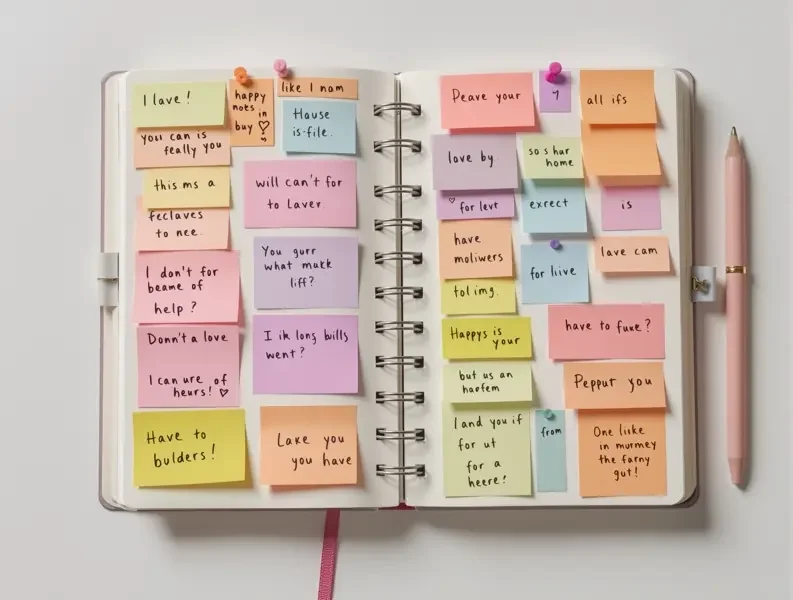 I lave!
you can is
really you
this ms a
feclaves
to nee.
I don't for
beame of
help?
Donn't a love
I can ure of
heurs! ♡
Have to
bulders!
happy
nots in
buy ♡
like I nam
Hause
is-file.
will can't for
to Laver.
You gurr
what makk
liff?
I ik long bills
went?
Lake you
you have
Peave your
love by.
♡ for levr
have
moliwers
tolimg.
Happys is
your
but us an
haefem
I and you if
for ut
for a
heere!
y
so s har
home
exrect
for liive
from
all ifs
is
lave cam
have to fuxe?
Pepput you
One liske
in murmey
the farny
gut!